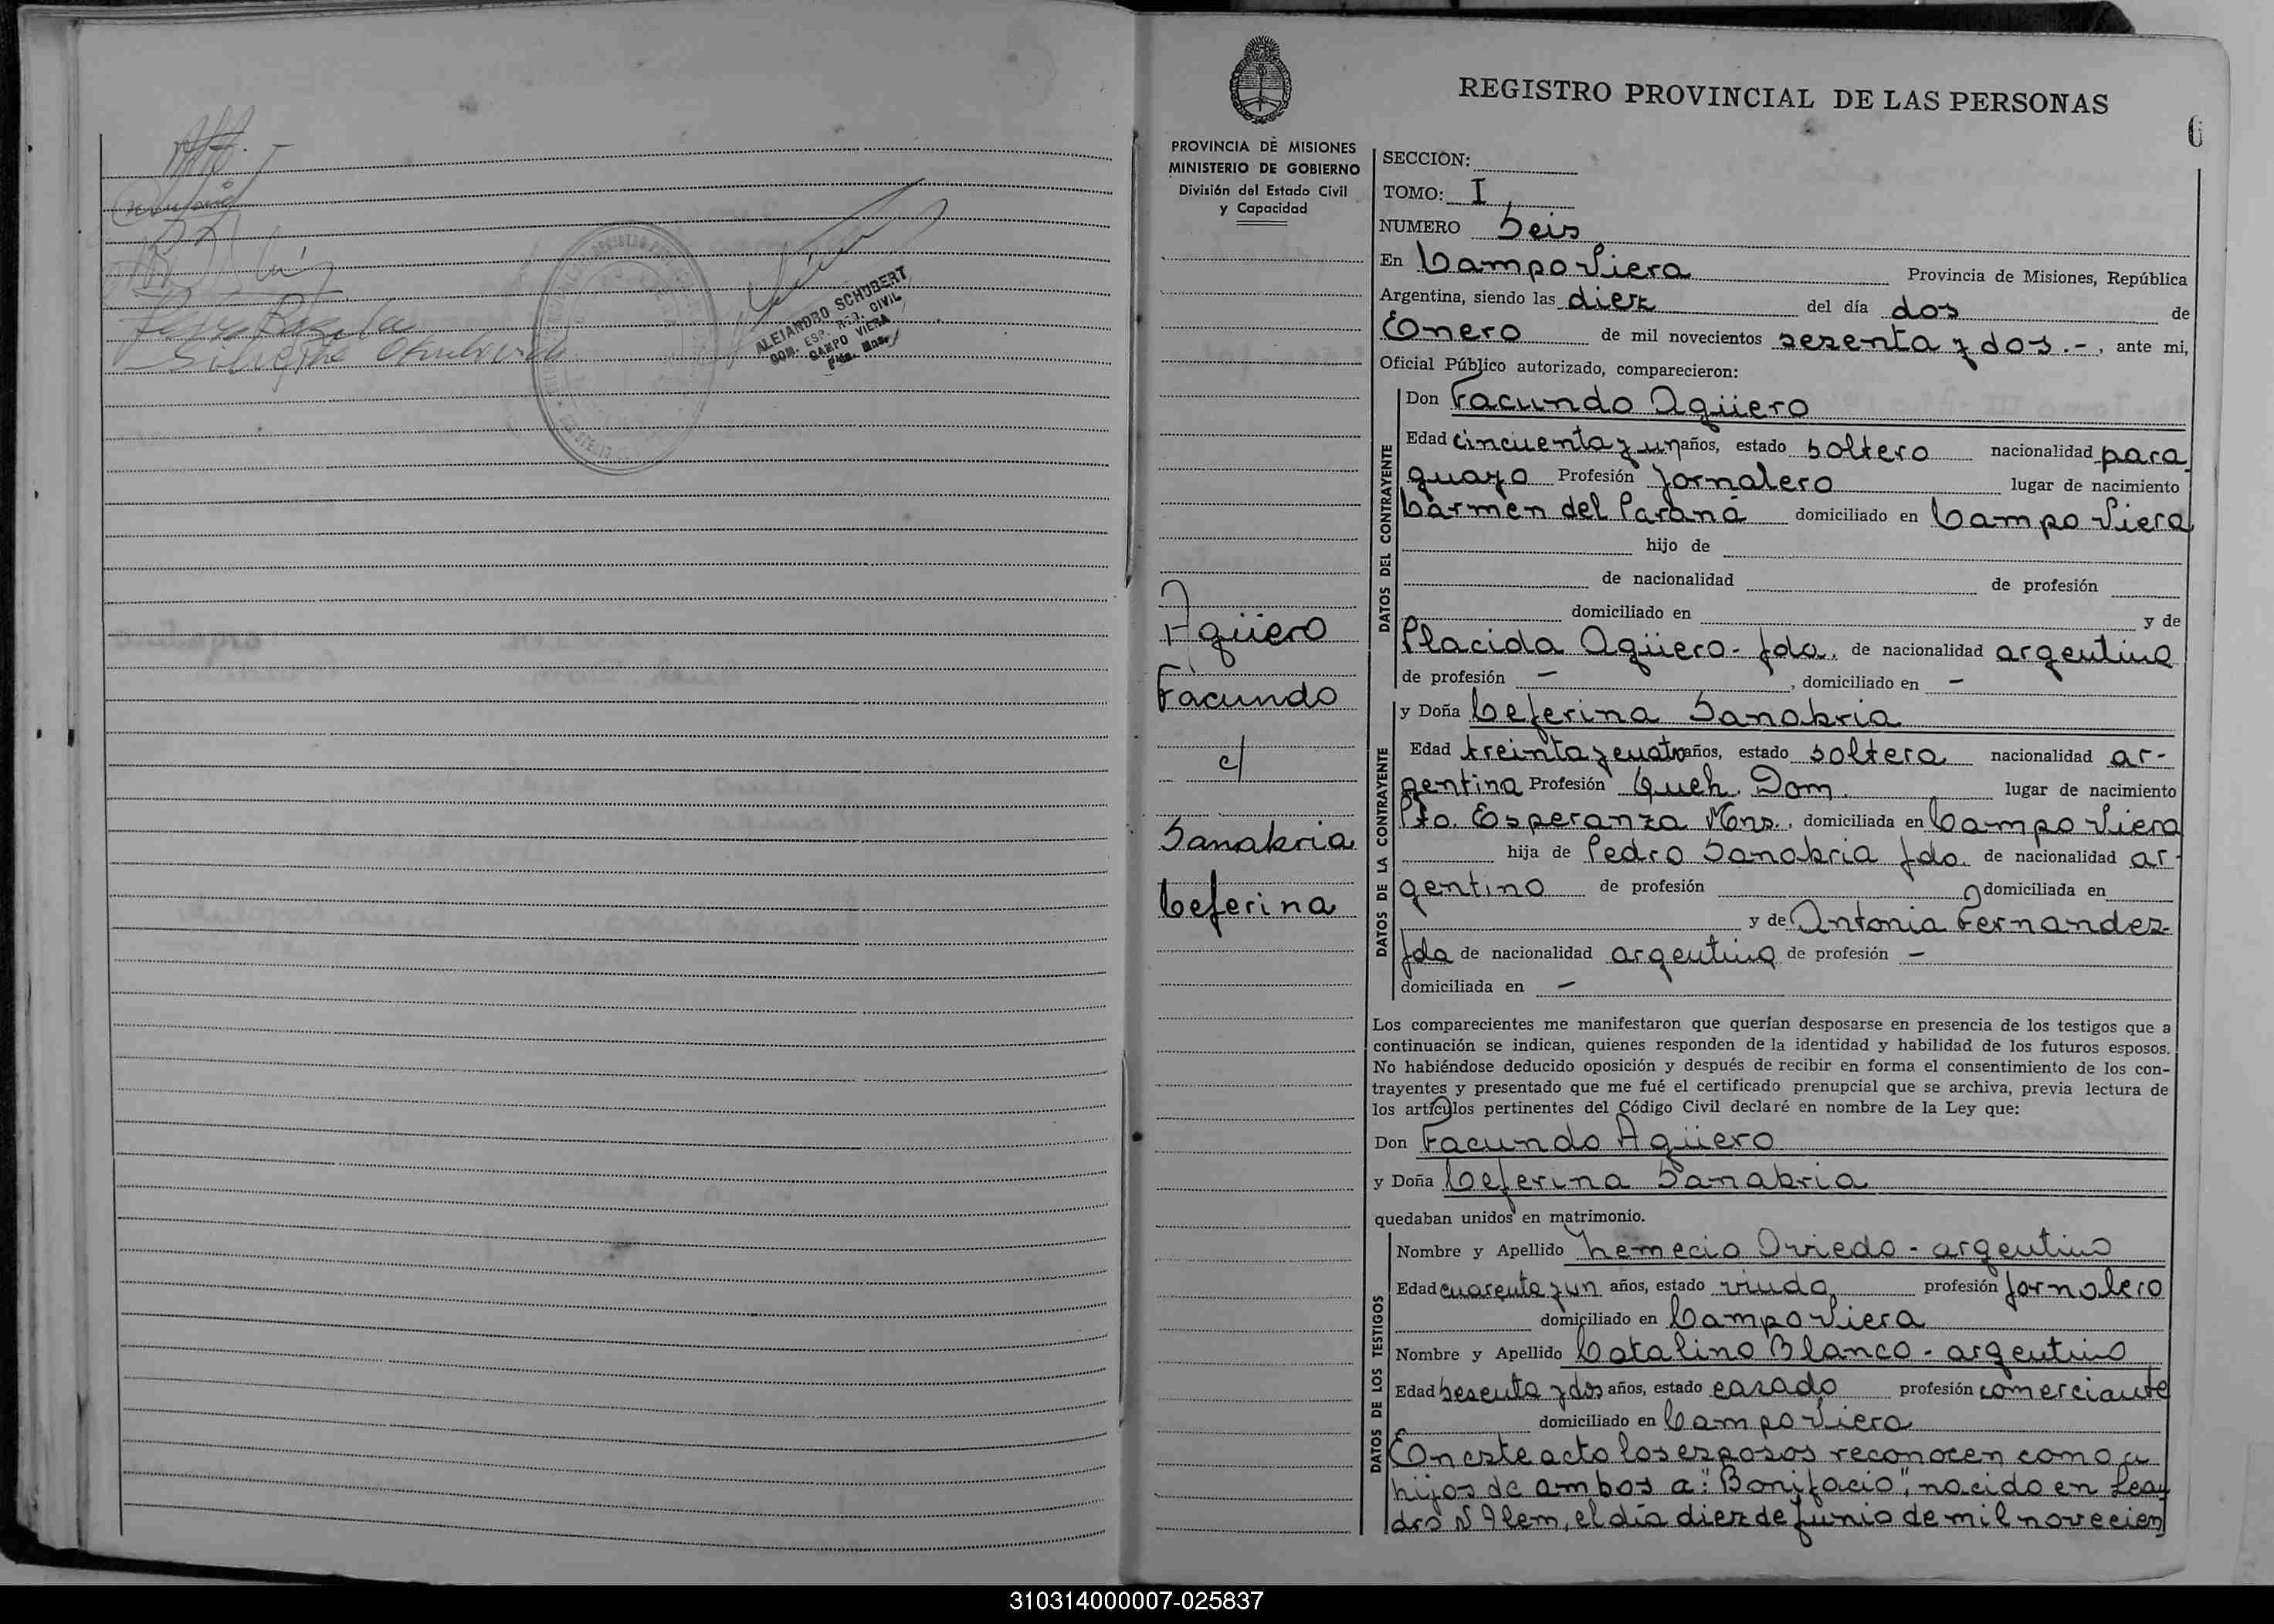 ALEJANDRO SCHUBERT
COM. ESP. REG. CIVIL
CAMPO VIERA
REGISTRO PROVINCIAL DE LAS PERSONAS
6
PROVINCIA DE MISIONES
MINISTERIO DE GOBIERNO
División del Estado Civil
y Capacidad
Agüero
Facundo
c/
Sanabria
Ceferina
SECCION:
TOMO: I
NUMERO Seis
En Campo Viera Provincia de Misiones, República
Argentina, siendo las diez del día dos de
Enero de mil novecientos sesenta y dos.-, ante mi,
Oficial Público autorizado, comparecieron:
DATOS DEL CONTRAYENTE
Don Facundo Agüero
Edad cincuenta y un años, estado soltero nacionalidad para
guayo Profesión Jornalero lugar de nacimiento
Carmen del Paraná domiciliado en Campo Viera
hijo de
de nacionalidad de profesión
domiciliado en y de
Placida Agüero-fda. de nacionalidad argentina
de profesión - , domiciliado en -
DATOS DE LA CONTRAYENTE
y Doña Ceferina Sanabria
Edad treinta y cuatro años, estado soltera nacionalidad ar-
gentina Profesión Queh. Dom. lugar de nacimiento
Pto. Esperanza Mns., domiciliada en Campo Viera
hija de Pedro Sanabria fdo. de nacionalidad ar-
gentino de profesión domiciliada en
y de Antonia Fernandez-
fda de nacionalidad argentina de profesión -
domiciliada en -
Los comparecientes me manifestaron que querían desposarse en presencia de los testigos que a
continuación se indican, quienes responden de la identidad y habilidad de los futuros esposos.
No habiéndose deducido oposición y después de recibir en forma el consentimiento de los con-
trayentes y presentado que me fué el certificado prenupcial que se archiva, previa lectura de
los artículos pertinentes del Código Civil declaré en nombre de la Ley que:
Don Facundo Agüero
y Doña Ceferina Sanabria
quedaban unidos en matrimonio.
DATOS DE LOS TESTIGOS
Nombre y Apellido Nemecio Oviedo - argentino
Edad cuarenta y un años, estado viudo profesión Jornalero
domiciliado en Campo Viera
Nombre y Apellido Catalino Blanco - argentino
Edad sesenta y dos años, estado casado profesión comerciante
domiciliado en Campo Viera
En este acto los esposos reconocen como a
hijos de ambos a: "Bonifacio", nacido en Lean
dro N Alem, el día diez de Junio de mil novecien
310314000007-025837